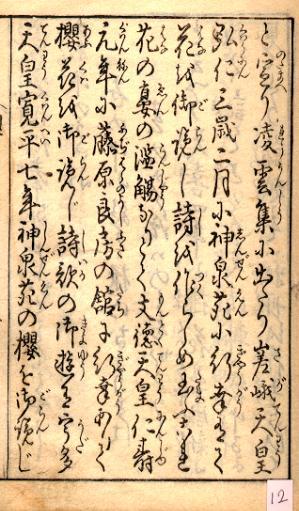 と宣り凌雲集に出たり嵯峨天皇
弘仁三歳二月に神泉苑に行幸有て
花を御覧じ詩を作らしめ玉ふこれ
花の宴の濫觴なりとぞ文徳天皇仁寿
元年に藤原良房の館に行幸ありて
櫻花を御覧じ詩歌の御遊有宇多
天皇寛平七年神泉苑の櫻を御覧じ
12